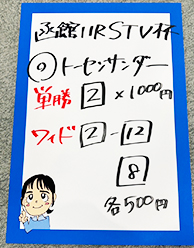 函館11R STV杯
◎トーセンサンダー
単勝 2 ×1000円
ワイド 2-12
8
各500円